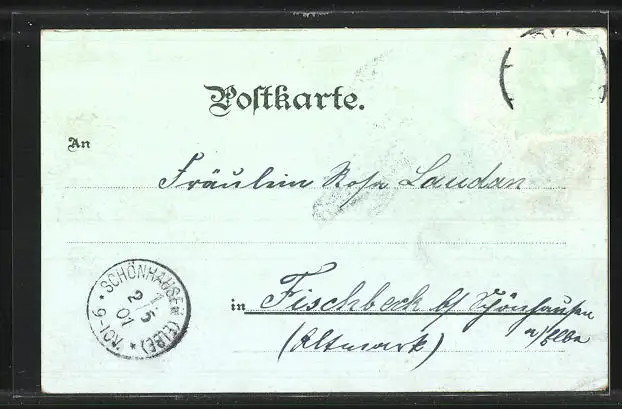 Postkarte.
An
Fräulein Rosa Laudan
in Fischbeck b/ Schönhausen
a/Elbe
(Altmark)
SCHÖNHAUSEN (ELBE)
2 5
01
9-10V